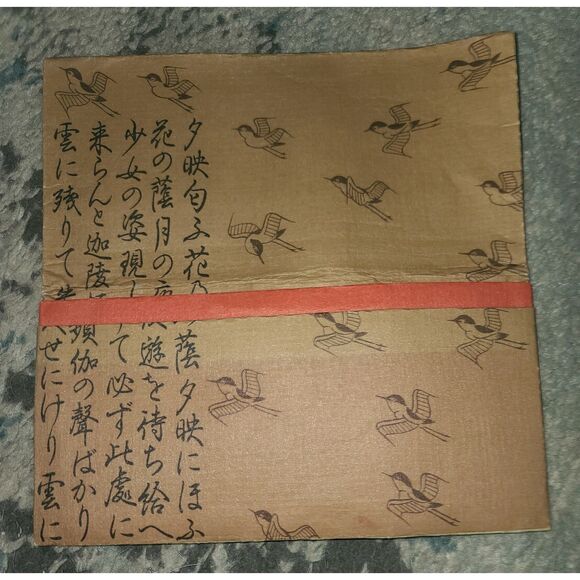 夕映匂ふ花乃蔭夕映にほふ
花の蔭月の夜遊を待ち給へ
少女の姿現して必ず此處に
来らんと迦陵頻伽の聲ばかり
雲に残りて せにけり雲に